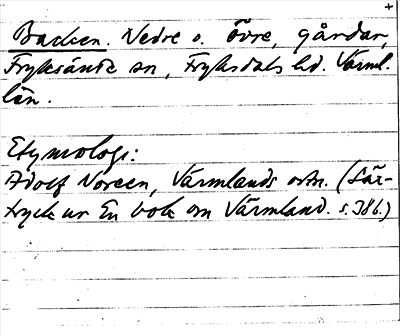 +
Backen. Nedre o. Övre, gårdar,
Fryksände sn, Fryksdals hd. Värml.
län.
Etymologi:
Adolf Noreen, Värmlands ortn. (Sär-
tryck ur En bok om Värmland. s. 386.)